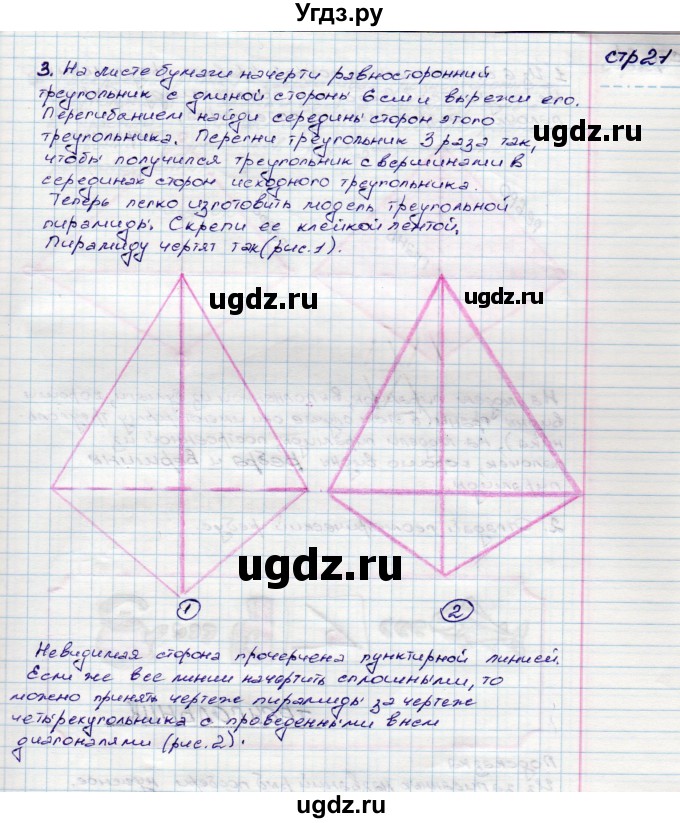 Угдз.ру
стр21
3. На листе бумаги начерти равносторонний
треугольник с длиной стороны 6см и вырежи его.
Перегибанием найди середины сторон этого
треугольника. Перегни треугольник 3 раза так,
чтобы получился треугольник с вершинами в
серединах сторон исходного треугольника.
Теперь легко изготовить модель треугольной
пирамиды. Скрепи ее клейкой лентой.
Пирамиду чертят так (рис.1).
ugdz.ru
ugdz.ru
ugdz.ru
ugdz.ru
1
2
Невидимая сторона прочерчена пунктирной линией.
Если же все линии начертить сплошными, то
можно принять чертеж пирамиды за чертеж
четырехугольника с проведенными в нем
диагоналями (рис.2).
ugdz.ru